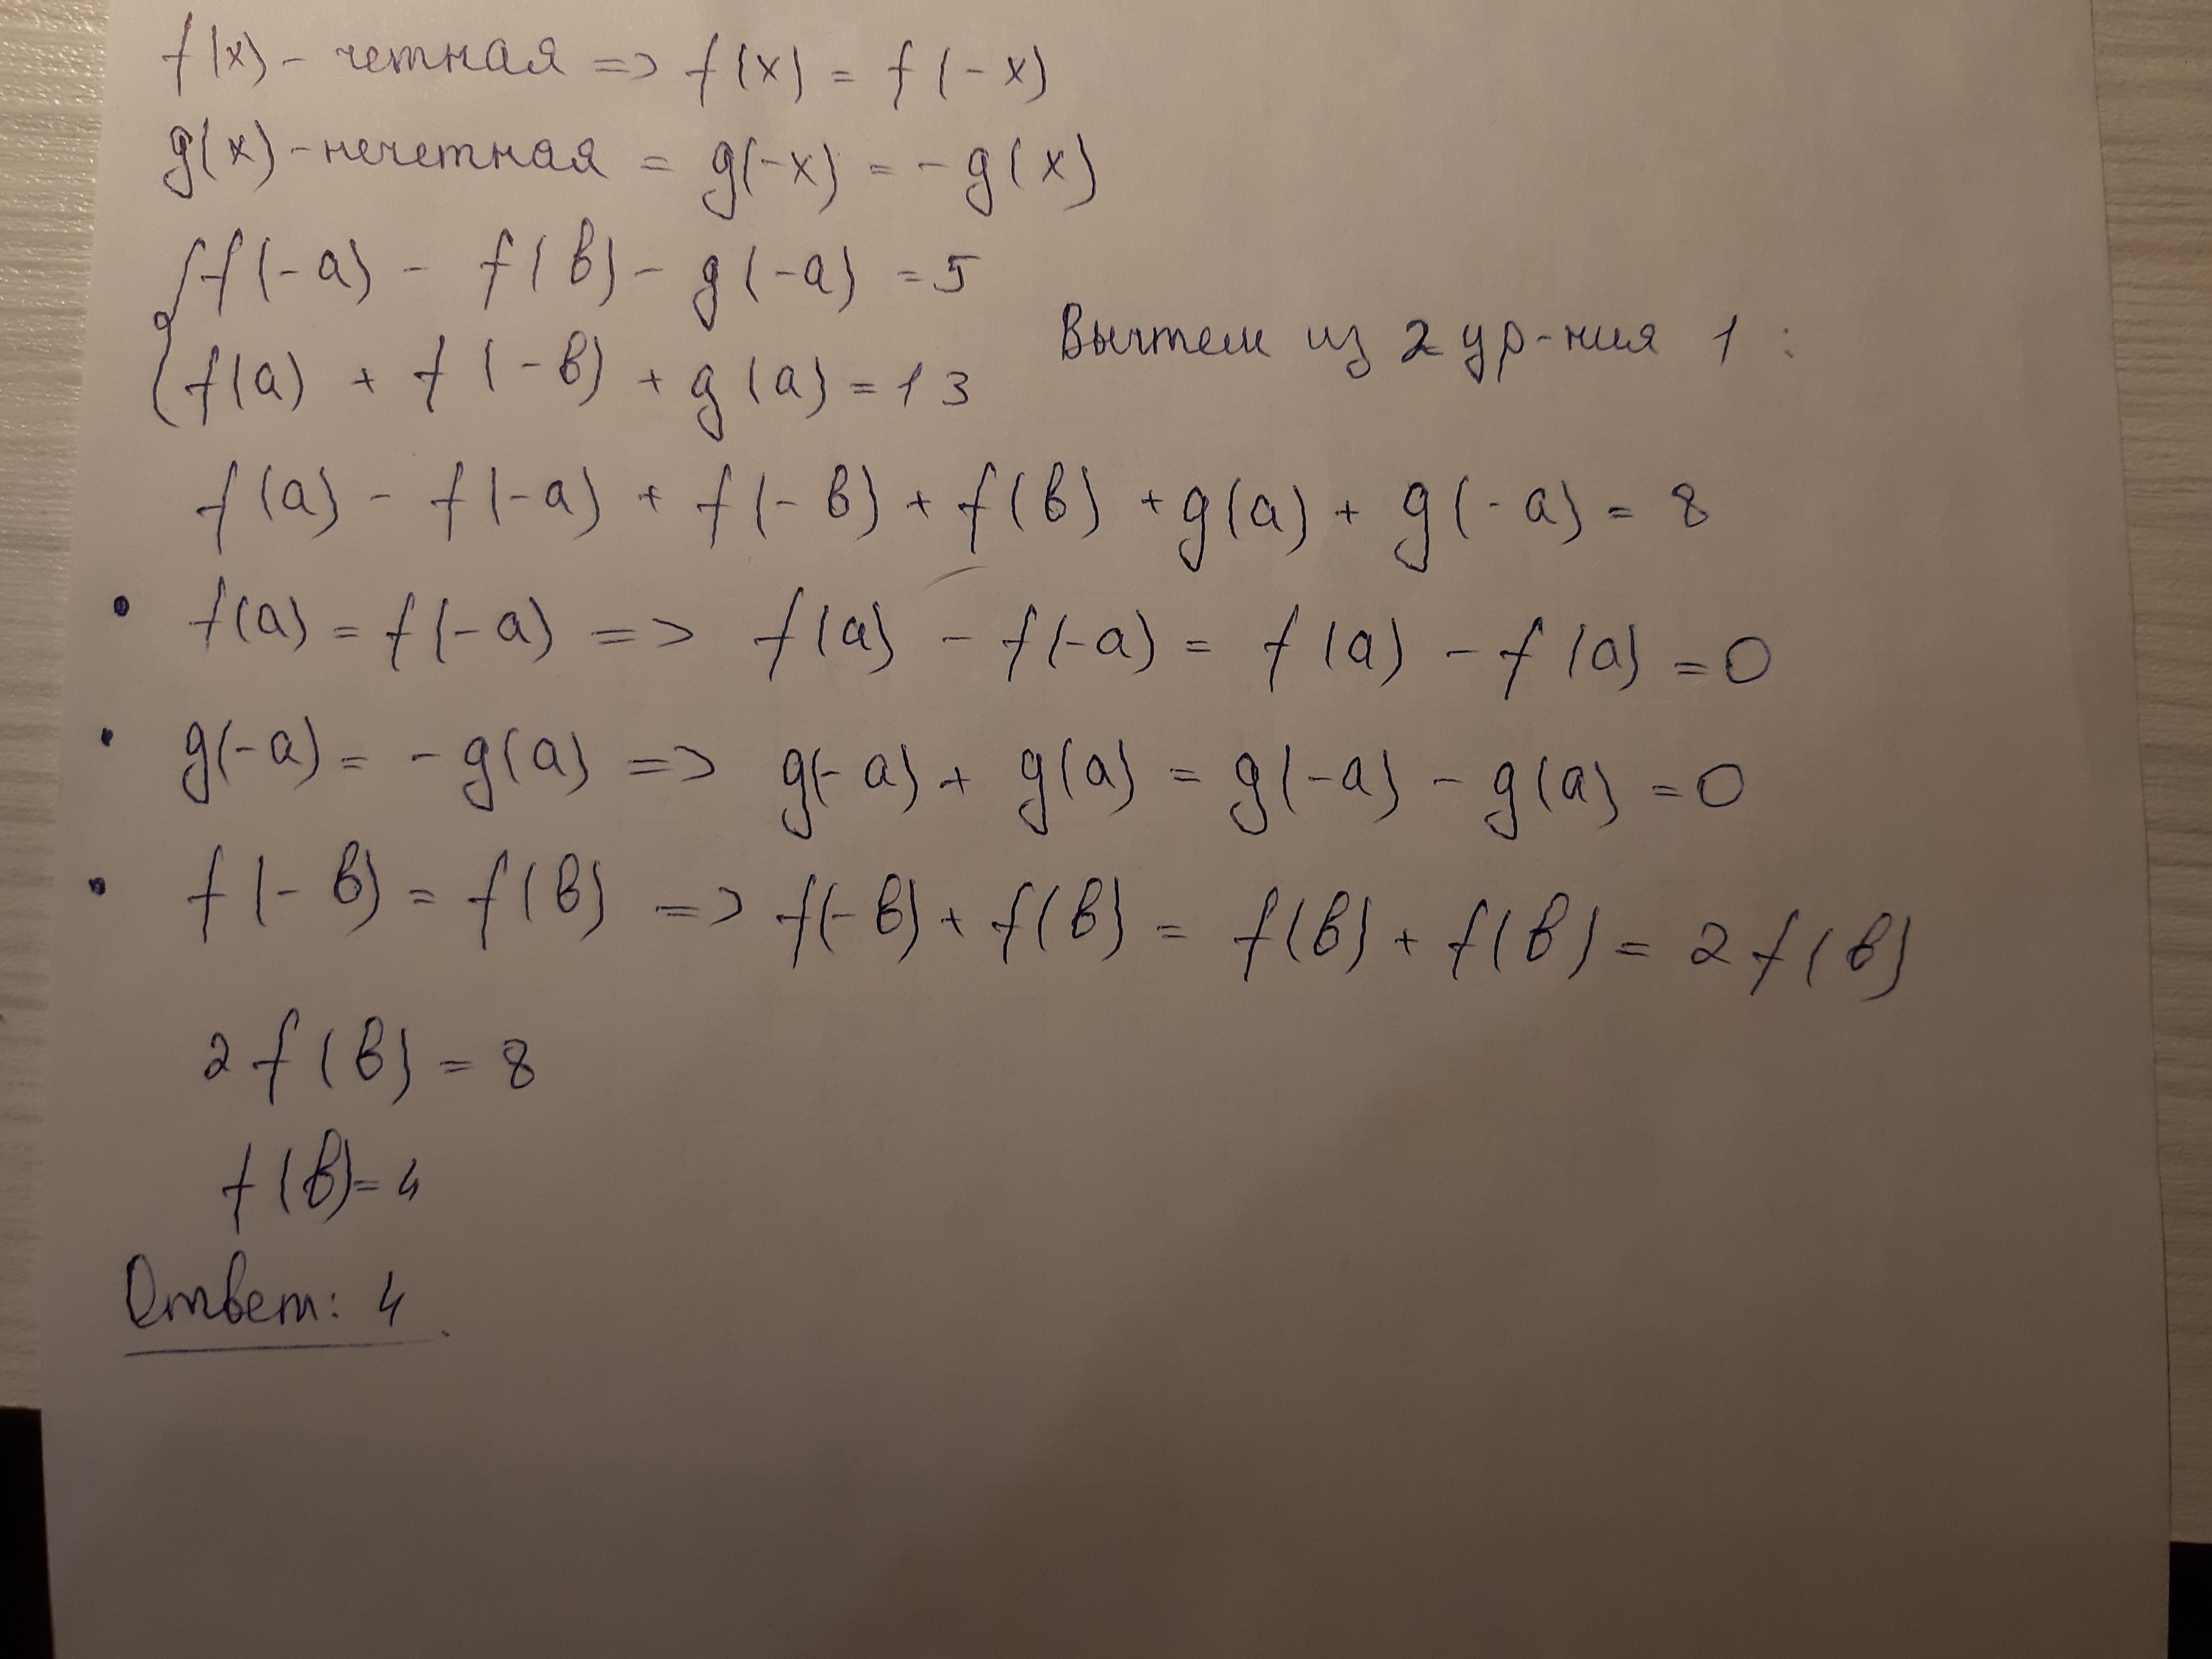 f(x) - четная => f(x) = f(-x)
g(x) - нечетная = g(-x) = -g(x)
{ f(-a) - f(в) - g(-a) = 5
{ f(a) + f(-в) + g(a) = 13
Вычтем из 2 ур-ния 1 :
f(a) - f(-a) + f(-в) + f(в) + g(a) + g(-a) = 8
• f(a) = f(-a) => f(a) - f(-a) = f(a) - f(a) = 0
• g(-a) = -g(a) => g(-a) + g(a) = g(-a) - g(a) = 0
• f(-в) = f(в) => f(-в) + f(в) = f(в) + f(в) = 2f(в)
2f(в) = 8
f(в) = 4
Ответ: 4.